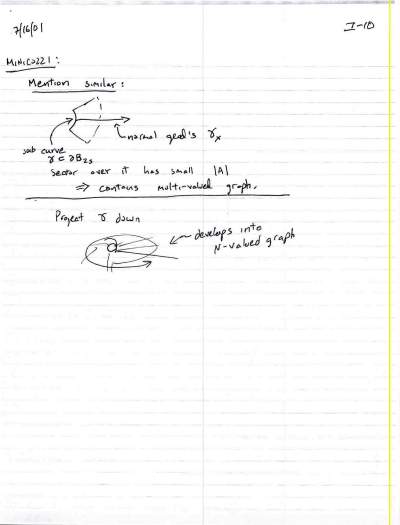 7/16/01
I-10
MINICOZZI:
Mention similar:
normal geod's γₓ
sub curve
γ ⊂ ∂B₂ₛ
Sector over it has small |A|
⇒ contains multi-valued graph.
Project γ down
develops into
N-valued graph